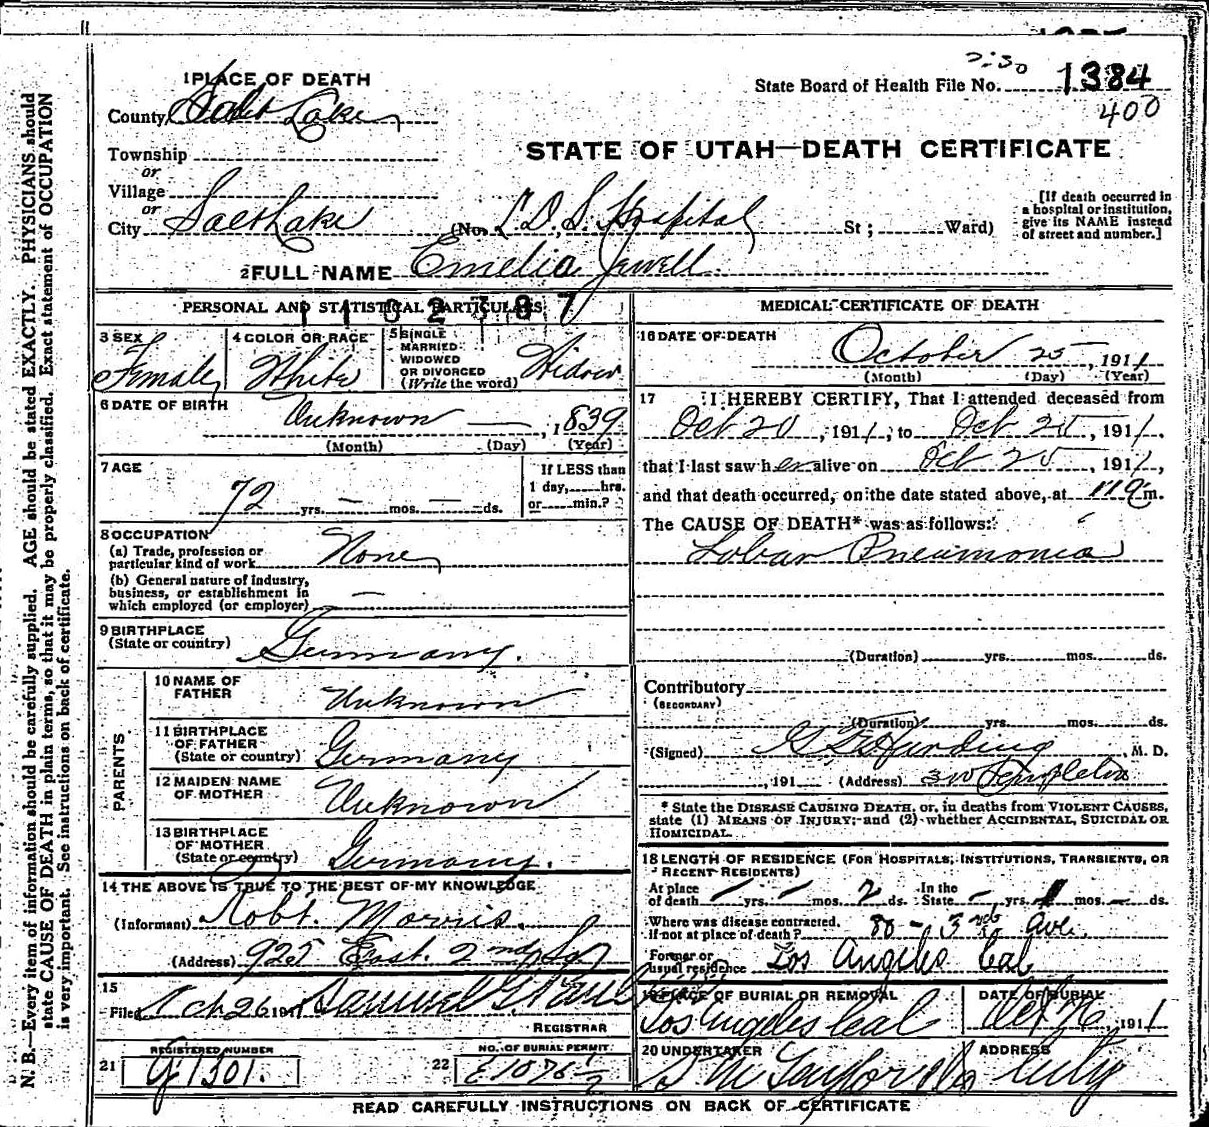 1 PLACE OF DEATH
County Salt Lake
Township
or
Village
or
City Salt Lake
2:30
State Board of Health File No. 1384
400
STATE OF UTAH—DEATH CERTIFICATE
(No. L. D. S. Hospital St; Ward)
[If death occurred in a hospital or institution, give its NAME instead of street and number.]
2 FULL NAME Emelia Jewell
PERSONAL AND STATISTICAL PARTICULARS
3 SEX Female
4 COLOR OR RACE White
5 SINGLE MARRIED WIDOWED OR DIVORCED (Write the word) Widow
6 DATE OF BIRTH Unknown — , 1839
(Month) (Day) (Year)
7 AGE
72 yrs. — mos. — ds.
If LESS than 1 day, hrs. or min.?
8 OCCUPATION
(a) Trade, profession or particular kind of work None
(b) General nature of industry, business, or establishment in which employed (or employer) —
9 BIRTHPLACE
(State or country) Germany.
PARENTS
10 NAME OF FATHER Unknown
11 BIRTHPLACE OF FATHER (State or country) Germany
12 MAIDEN NAME OF MOTHER Unknown
13 BIRTHPLACE OF MOTHER (State or country) Germany.
14 THE ABOVE IS TRUE TO THE BEST OF MY KNOWLEDGE
(Informant) Robt. Morris.
(Address) 925 East 2nd So
15
Filed Oct 26 1911 Samuel G. Paul
REGISTRAR
21 REGISTERED NUMBER
G 1301.
22 NO. OF BURIAL PERMIT
E 1076 1/2
MEDICAL CERTIFICATE OF DEATH
16 DATE OF DEATH
October 25, 1911
(Month) (Day) (Year)
17 I HEREBY CERTIFY, That I attended deceased from
Oct 20, 1911, to Oct 25, 1911,
that I last saw her alive on Oct 25, 1911,
and that death occurred, on the date stated above, at m.
The CAUSE OF DEATH* was as follows:
Lobar Pneumonia
(Duration) yrs. mos. ds.
Contributory
(SECONDARY)
(Duration) yrs. mos. ds.
(Signed) Harding M. D.
, 191 (Address) Templeton
* State the DISEASE CAUSING DEATH, or, in deaths from VIOLENT CAUSES, state (1) MEANS OF INJURY; and (2) whether ACCIDENTAL, SUICIDAL OR HOMICIDAL.
18 LENGTH OF RESIDENCE (FOR HOSPITALS, INSTITUTIONS, TRANSIENTS, OR RECENT RESIDENTS)
At place of death yrs. mos. 2 ds. In the State yrs. mos. ds.
Where was disease contracted, if not at place of death? 80 - 3rd Ave.
Former or usual residence Los Angeles Cal
19 PLACE OF BURIAL OR REMOVAL
Los Angeles Cal
DATE OF BURIAL
Oct 26, 1911
20 UNDERTAKER
S M Taylor & Co
ADDRESS
City
READ CAREFULLY INSTRUCTIONS ON BACK OF CERTIFICATE
N. B.—Every item of information should be carefully supplied. AGE should be stated EXACTLY. PHYSICIANS should
state CAUSE OF DEATH in plain terms, so that it may be properly classified. Exact statement of OCCUPATION
is very important. See instructions on back of certificate.